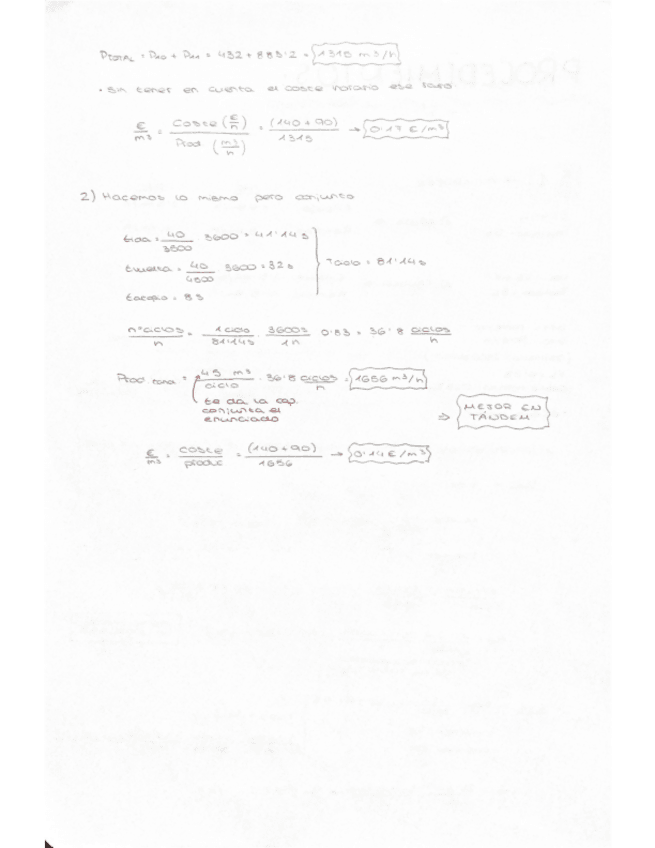 PTOTAL = D10 + D11 = 432 + 883'2 = 1315 m3/h
• Sin tener en cuenta el coste horario ese
€/m3 = Coste (€/h) / Prod (m3/h) = (140+90) / 1315 → 0'17 €/m3
2) Hacemos lo mismo pero conjunto
tida = 40/3500 3600 = 41'14s
tvuelta = 40/4500 3600 = 32s Tciclo = 81'14s
= 8s
nºciclos/h = 1 ciclo/81'14s · 3600s/1h · 0'83 = 36'8 ciclos/h
Prod = 45 m3/ciclo · 36'8 ciclos/h = 1656 m3/h
te da la cap.
conjunta el
enunciado
⇒ MEJOR EN
TÁNDEM
€/m3 = coste/produc = (140+90)/1656 → 0'14 €/m3